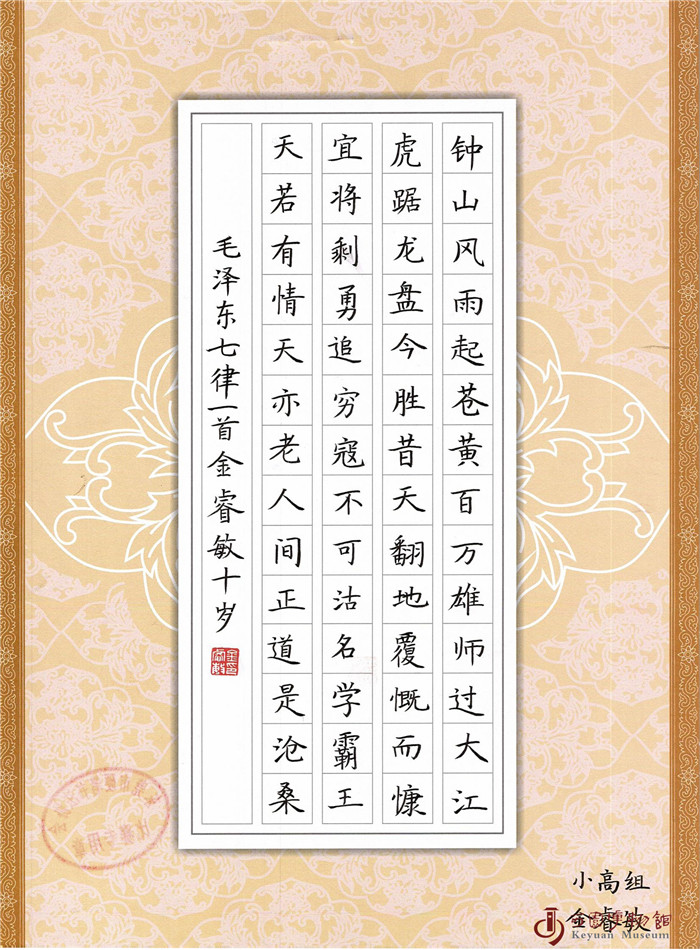 钟山风雨起苍黄百万雄师过大江
虎踞龙盘今胜昔天翻地覆慨而慷
宜将剩勇追穷寇不可沽名学霸王
天若有情天亦老人间正道是沧桑
毛泽东七律一首金睿敏十岁
小高组
金睿敏
Keyuan Museum